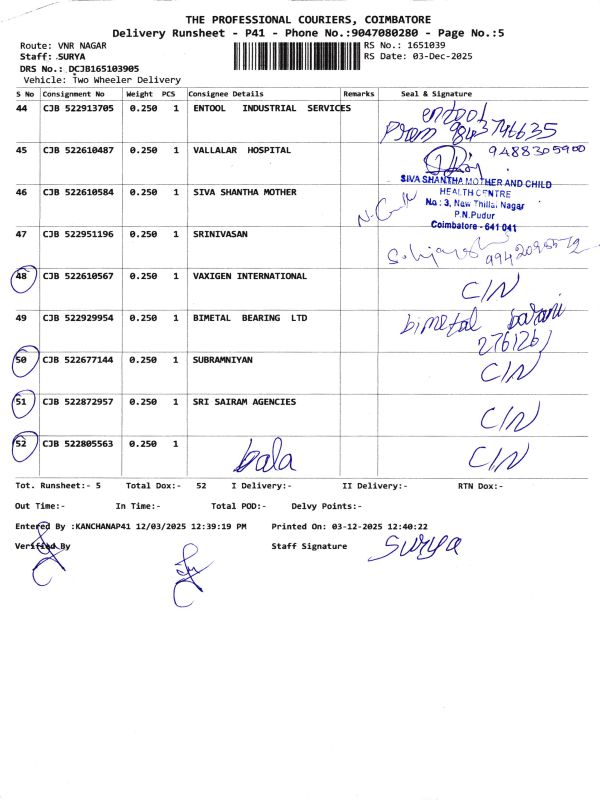 THE PROFESSIONAL COURIERS, COIMBATORE
Delivery Runsheet - P41 - Phone No.:9047080280 - Page No.:5
Route: VNR NAGAR RS No.: 1651039
Staff: .SURYA RS Date: 03-Dec-2025
DRS No.: DCJB165103905
Vehicle: Two Wheeler Delivery
S No Consignment No Weight PCS Consignee Details Remarks Seal & Signature
44 CJB 522913705 0.250 1 ENTOOL INDUSTRIAL SERVICES entool
9843746635
45 CJB 522610487 0.250 1 VALLALAR HOSPITAL 9488305900
46 CJB 522610584 0.250 1 SIVA SHANTHA MOTHER
SIVA SHANTHA MOTHER AND CHILD
HEALTH CENTRE
No : 3, New Thillai Nagar
P.N.Pudur
Coimbatore - 641 041
47 CJB 522951196 0.250 1 SRINIVASAN
48 CJB 522610567 0.250 1 VAXIGEN INTERNATIONAL C/N
49 CJB 522929954 0.250 1 BIMETAL BEARING LTD bimetal
50 CJB 522677144 0.250 1 SUBRAMNIYAN C/N
51 CJB 522872957 0.250 1 SRI SAIRAM AGENCIES C/N
52 CJB 522805563 0.250 1 bala C/N
Tot. Runsheet:- 5 Total Dox:- 52 I Delivery:- II Delivery:- RTN Dox:-
Out Time:- In Time:- Total POD:- Delvy Points:-
Entered By :KANCHANAP41 12/03/2025 12:39:19 PM Printed On: 03-12-2025 12:40:22
Verified By Staff Signature Surya